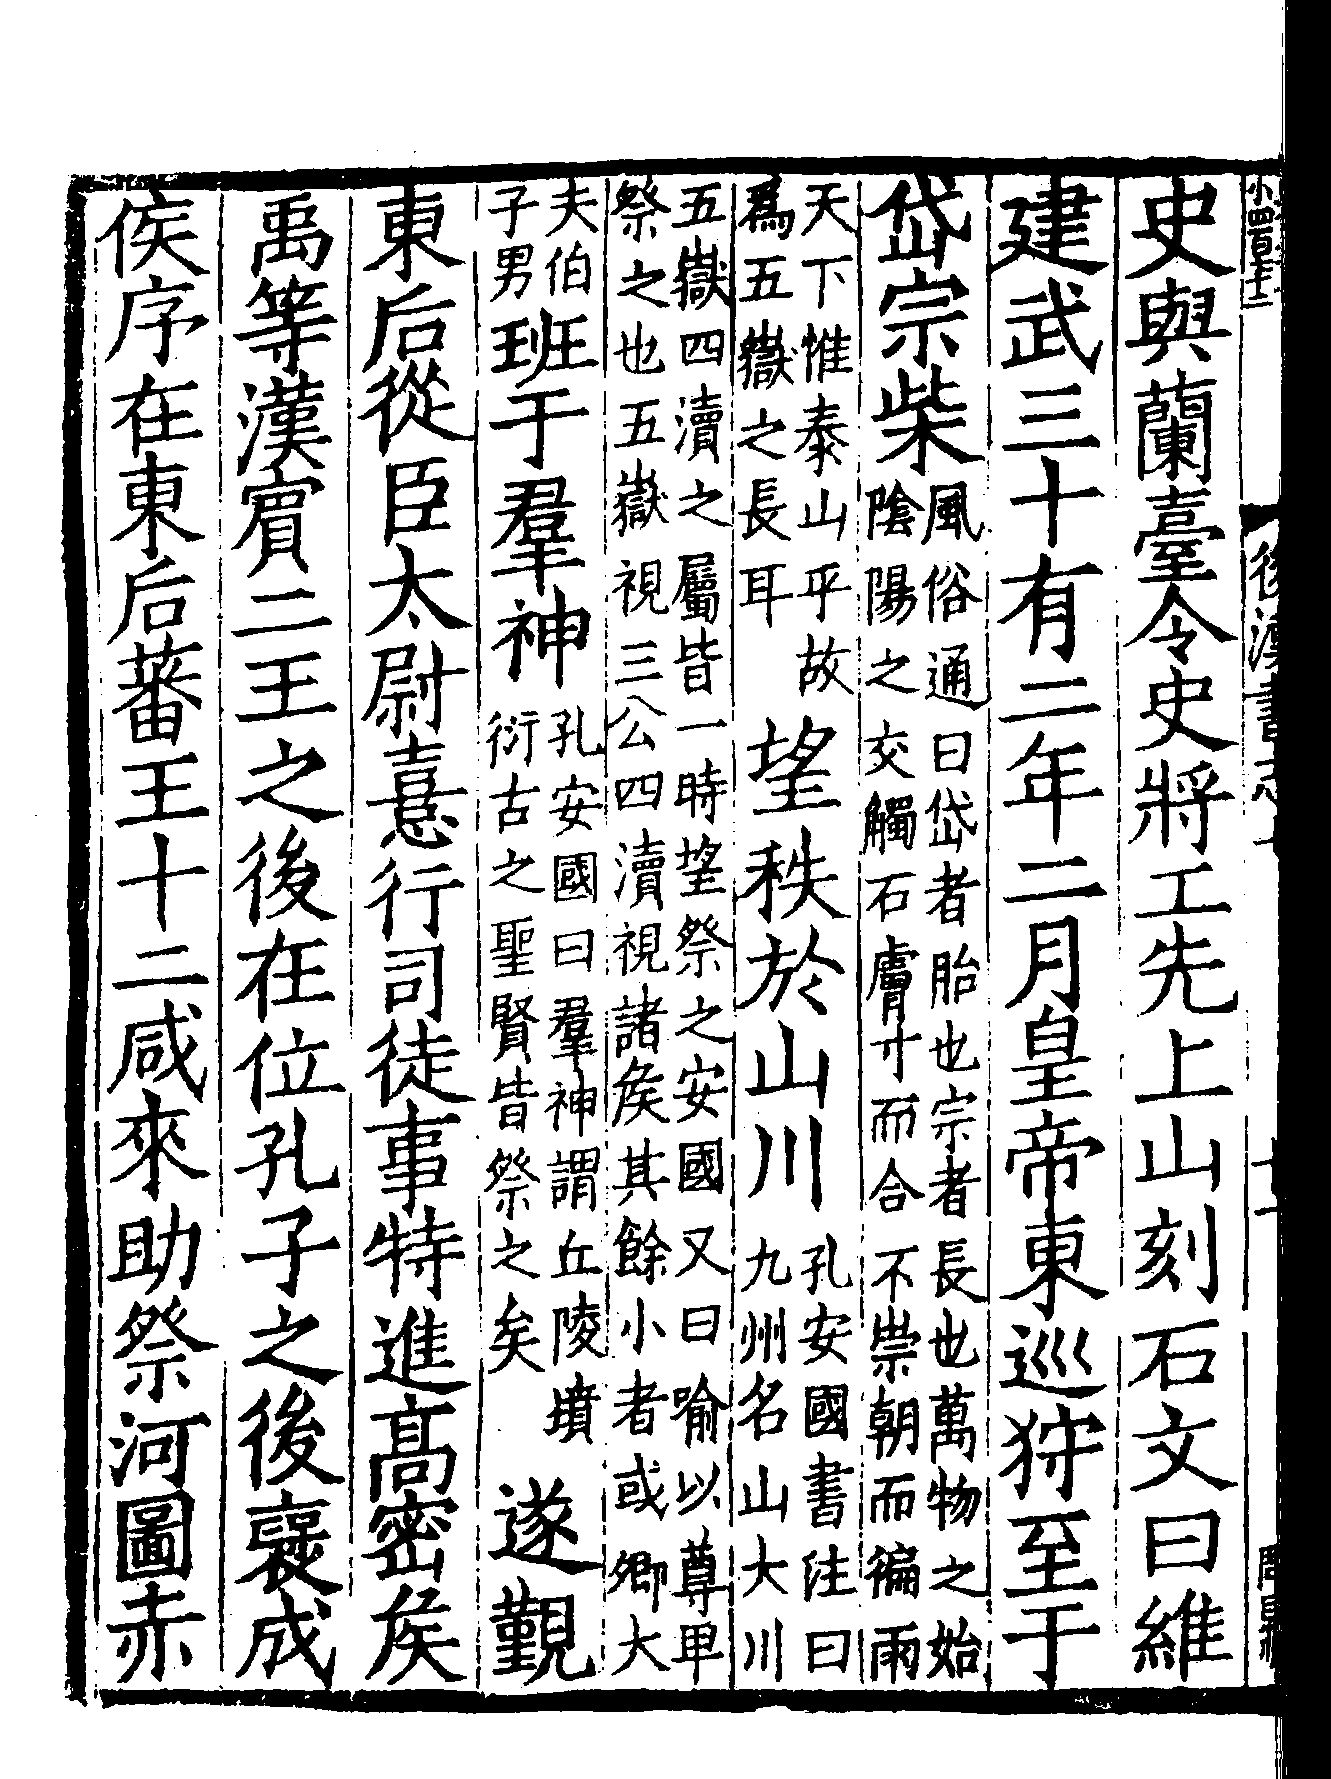 史與蘭臺令史將工先上山刻石文曰維
建武三十有二年二月皇帝東巡狩至于
岱宗柴風俗通曰岱者胎也宗者長也萬物之始
陰陽之交觸石膚寸而合不崇朝而徧雨
天下惟泰山乎故
爲五嶽之長耳
望秩於山川孔安國書注曰
九州名山大川
五嶽四瀆之屬皆一時望祭之安國又曰喻以尊甲
祭之也五嶽視三公四瀆視諸侯其餘小者或卿大
夫伯
子男
班于羣神孔安國曰羣神謂丘陵墳
衍古之聖賢皆祭之矣
遂覲
東后從臣太尉憙行司徒事特進高密侯
禹等漢賓二王之後在位孔子之後襃成
侯序在東后蕃王十二咸來助祭河圖赤
後漢書志七